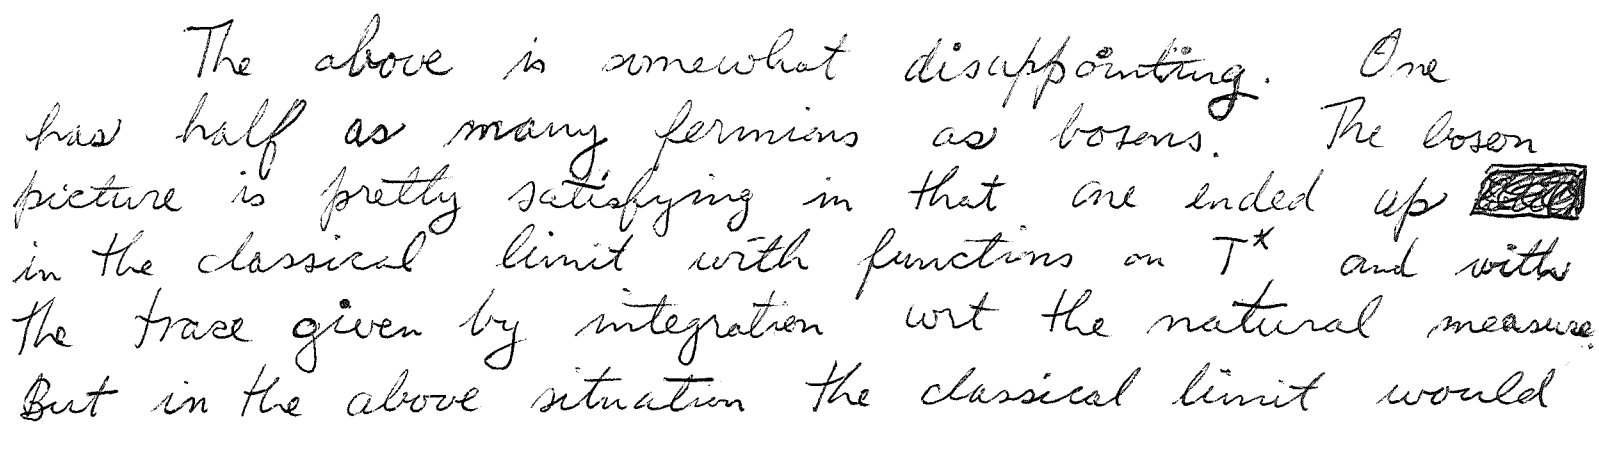 The above is somewhat disappointing. One
has half as many fermions as bosons. The boson
picture is pretty satisfying in that one ended up
in the classical limit with functions on T* and with
the trace given by integration wrt the natural measure.
But in the above situation the classical limit would